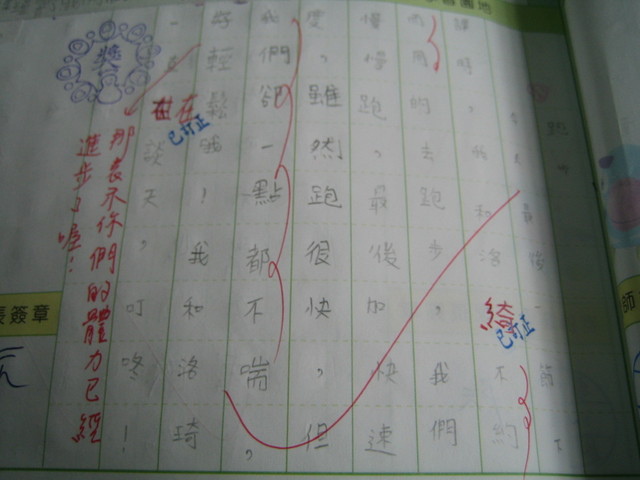 園地
跑
最後一節
課時，我和洛不約
綺
已訂正
而同的去跑步，我們
慢慢跑，最後加快速
度，雖然跑很快，但
我們卻一點都不喘，
好輕鬆哦！我和洛琦
一在談天，叮咚！
在
已訂正
獎
那表示你們的體力已經
進步了喔！
長簽章
師